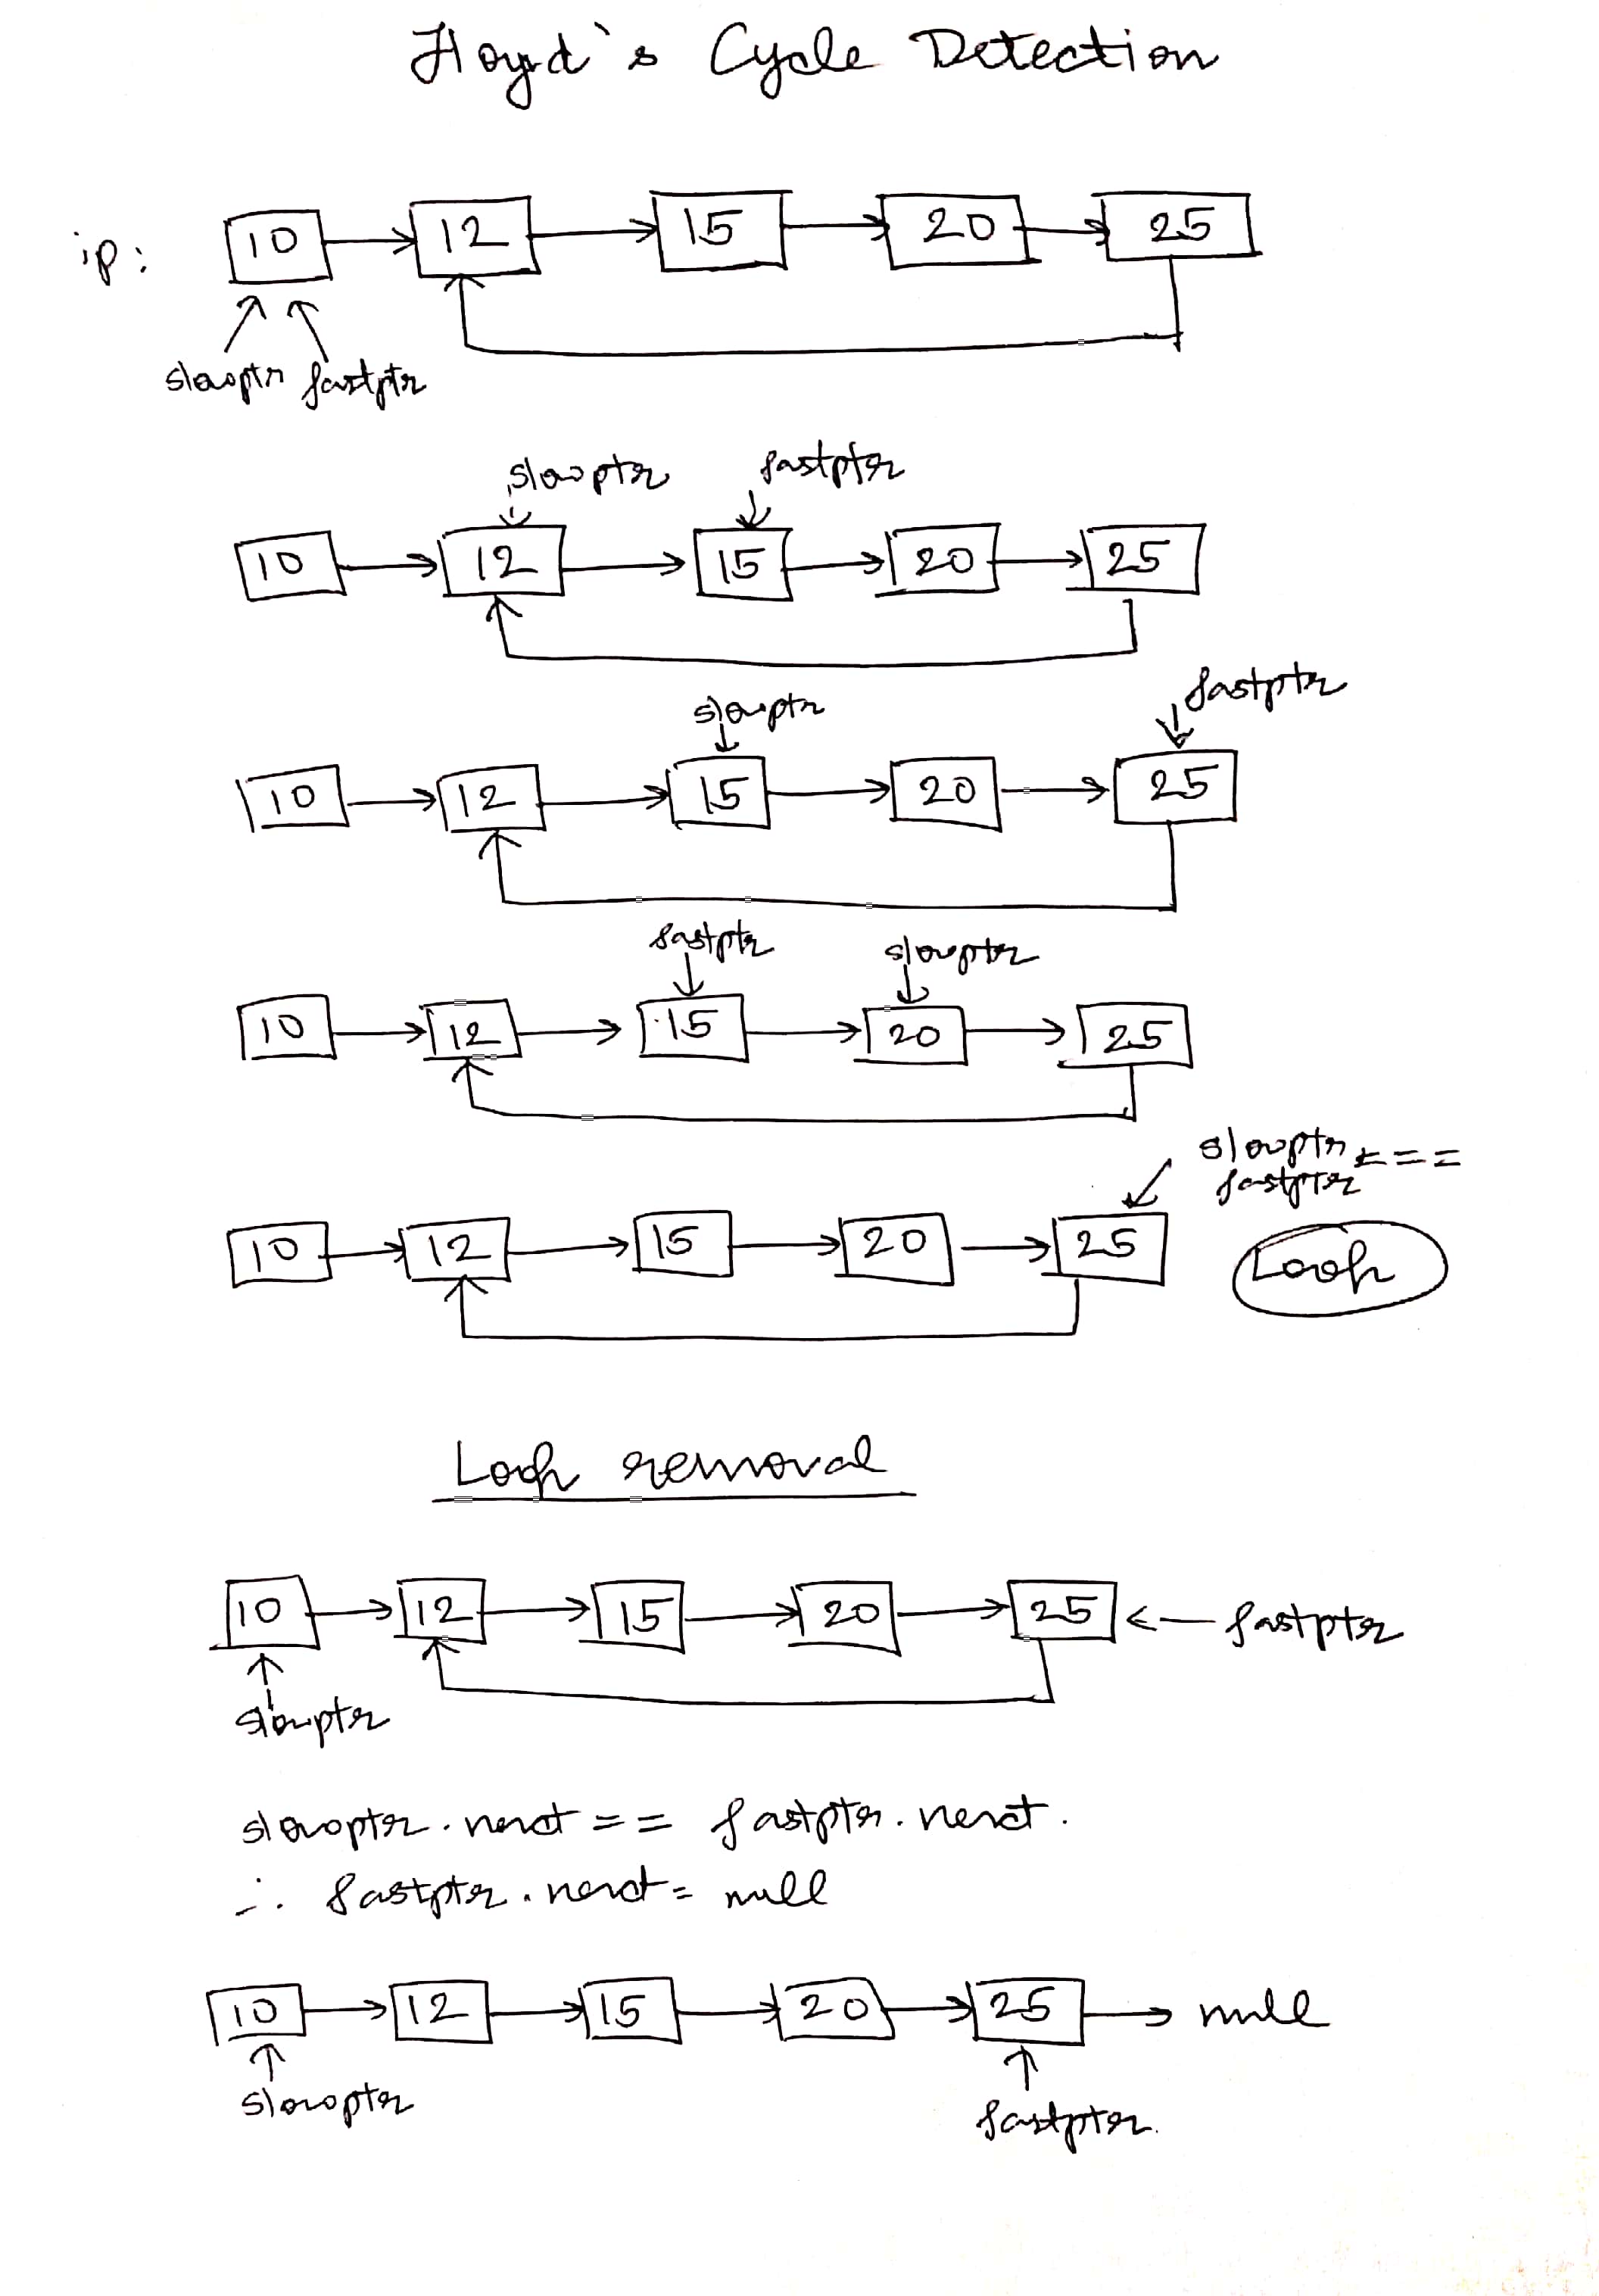 Floyd's Cycle Detection
ip: 10 12 15 20 25
slowptr fastptr
slowptr fastptr
10 12 15 20 25
slowptr fastptr
10 12 15 20 25
fastptr slowptr
10 12 15 20 25
slowptr ===
fastptr
10 12 15 20 25
Loop
Loop removal
10 12 15 20 25 fastptr
slowptr
slowptr.next == fastptr.next.
∴ fastptr.next = null
10 12 15 20 25 null
slowptr
fastptr.